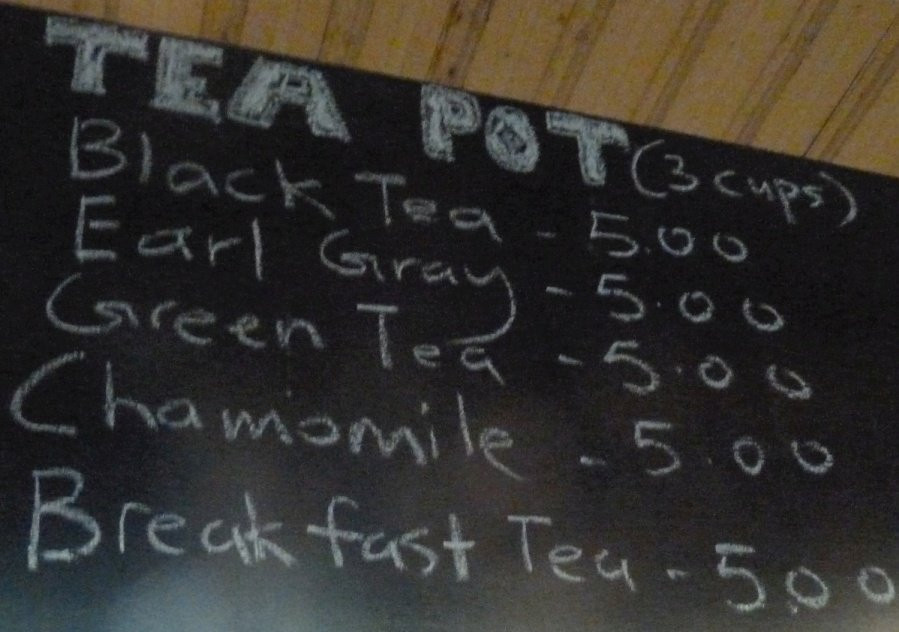 TEA POT (3 cups)
Black Tea - 5.00
Earl Gray - 5.00
Green Tea - 5.00
Chamomile - 5.00
Breakfast Tea - 5.00